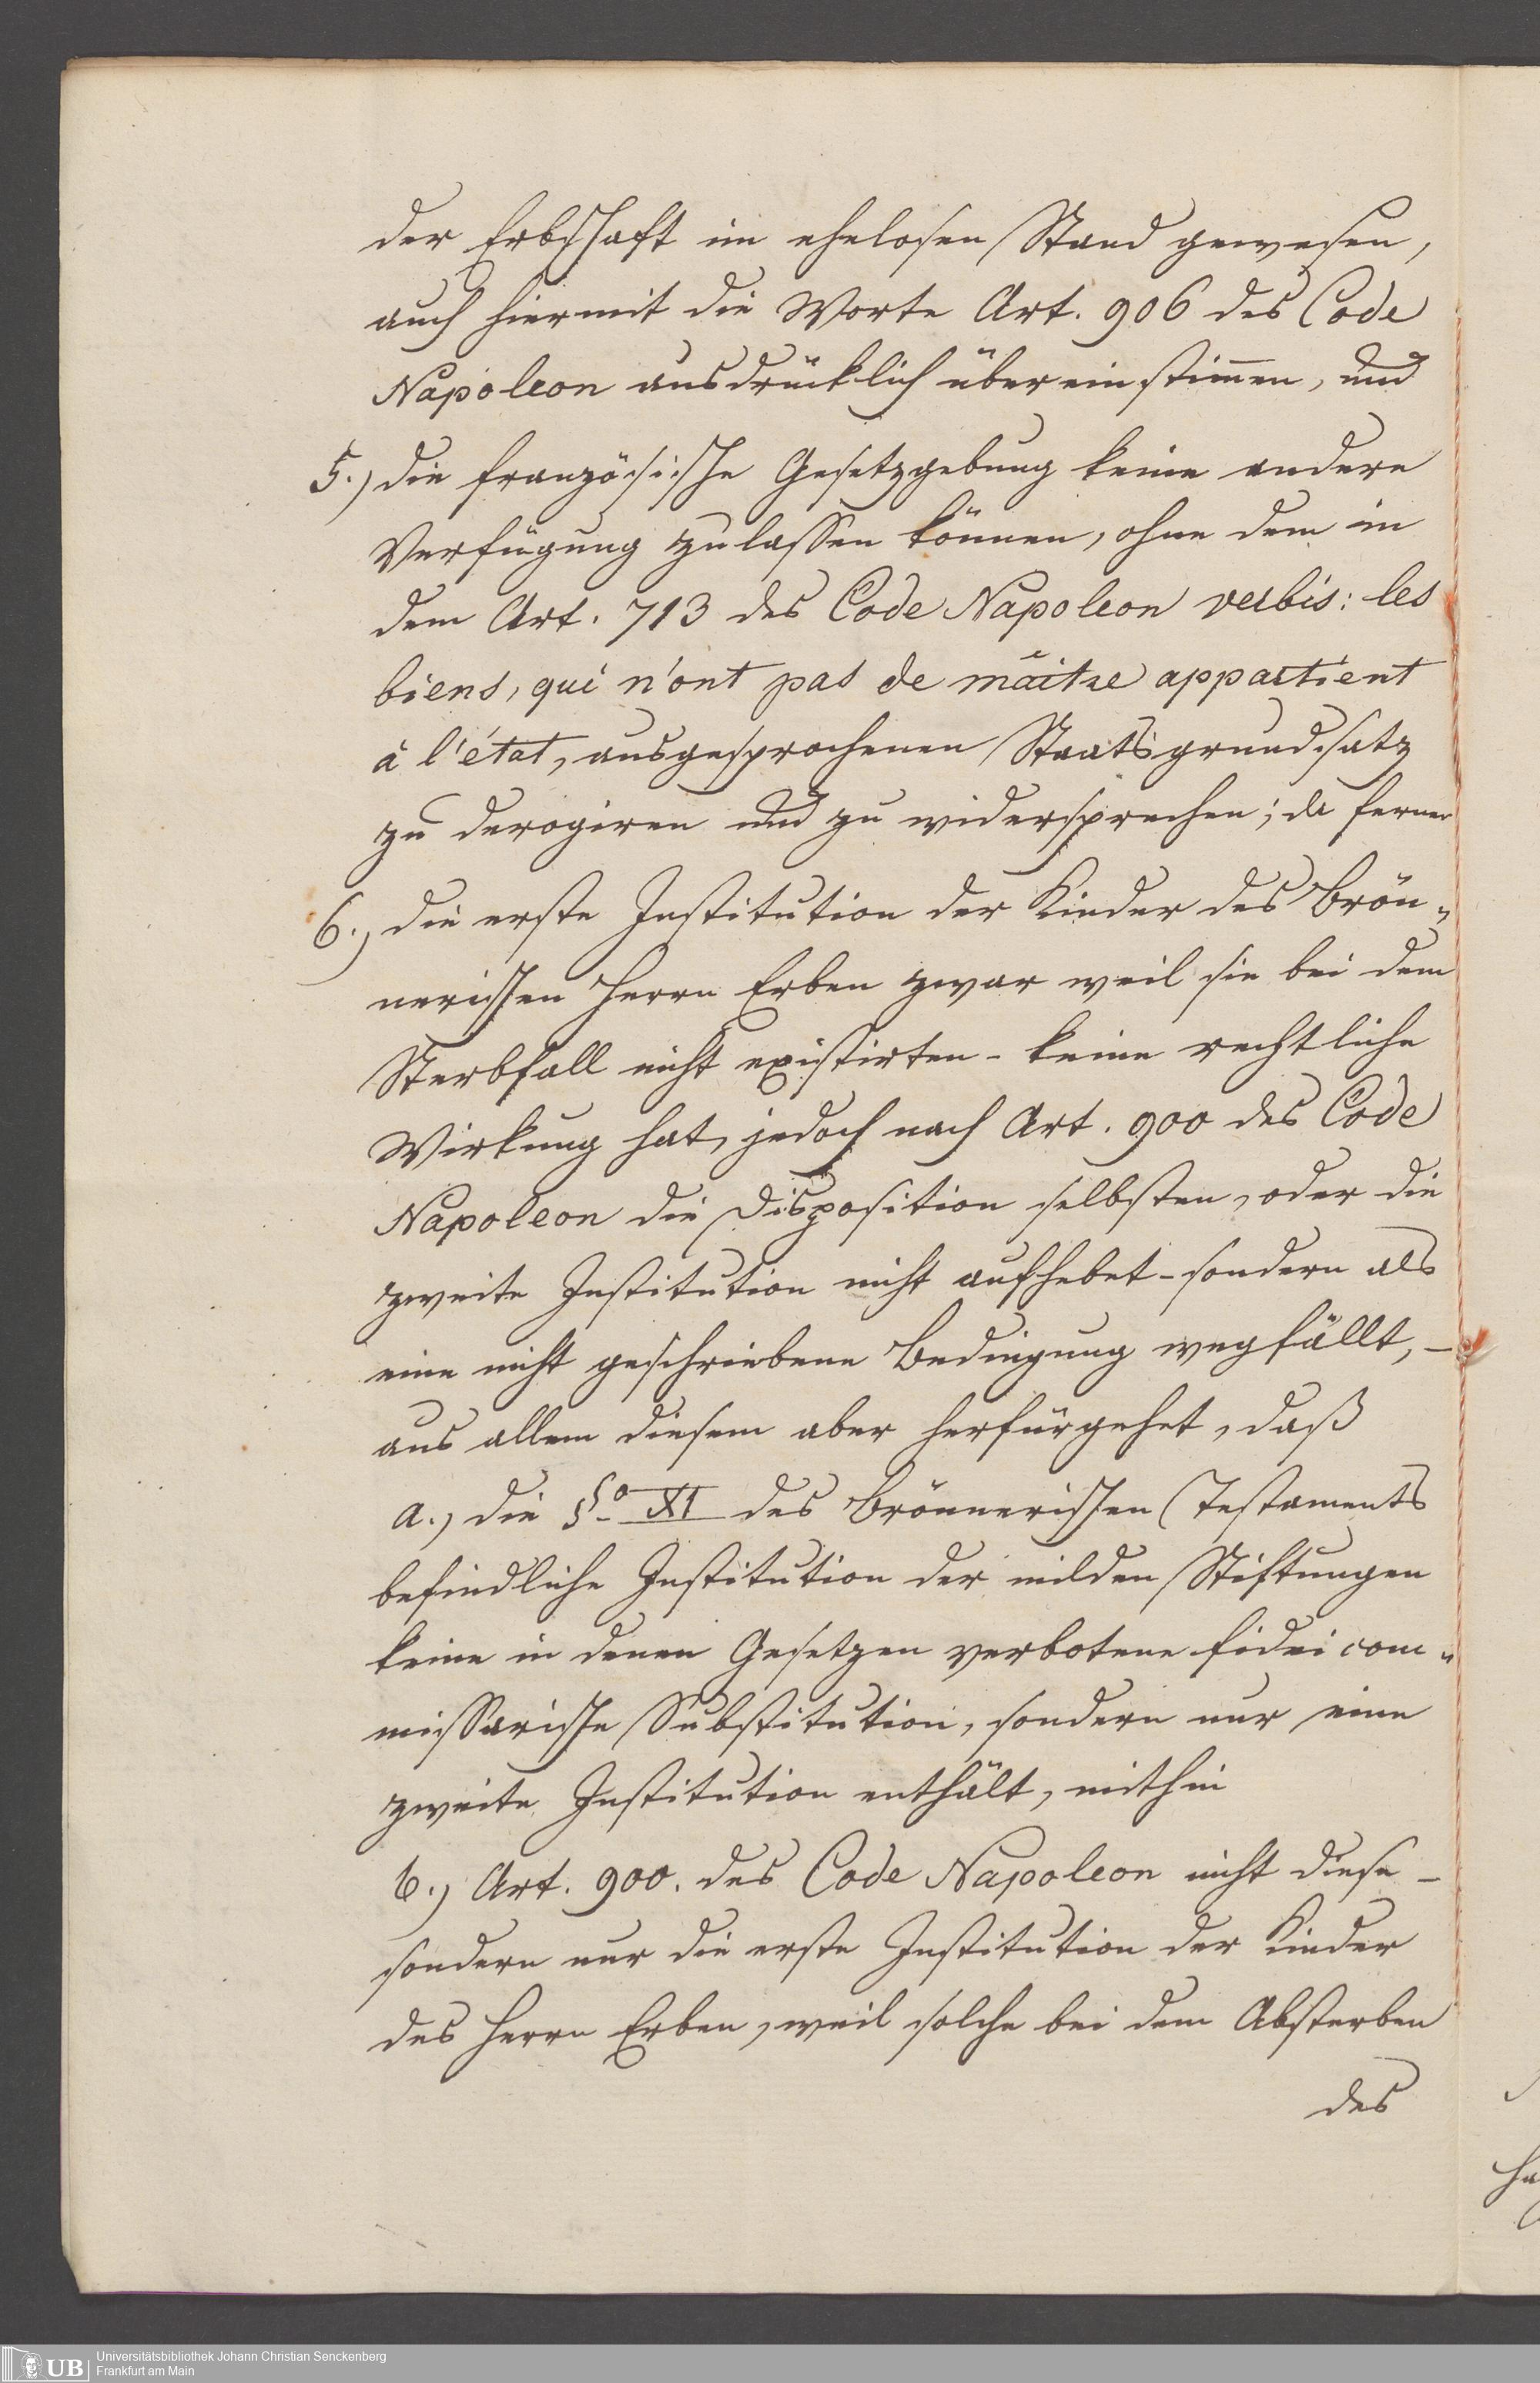 der Erbschaft im ehelosen Stand gewesen,
auch hiermit die Worte Art. 906 des Code
Napoleon ausdrücklich übereinstim̄en, und
5.) die französische Gesetzgebung keine andere
Verfügung zulassen können, ohne dem in
dem Art. 713 des Code Napoleon verbis: les
biens, qui n'ont pas de maître appartient
à l'état, ausgesprochenen Staatsgrundsatz
zu derogiren und zu widersprechen; da ferner
6.) die erste Institution der Kinder des Brön„
nerischen Herrn Erben zwar weil sie bei dem
Sterbfall nicht existirten - keine rechtliche
Wirkung hat, jedoch nach Art. 900 des Code
Napoleon die Disposition selbsten, oder die
zweite Institution nicht aufhebet - sondern als
eine nicht geschriebene Bedingung wegfällt, -
aus allem diesem aber herfürgehet, daß
a.) die §o XI des Brönnerischen Testaments
befindliche Institution der milden Stiftungen
keine in denen Gesetzen verbotene fidei com„
missarische Substitution, sondern nur eine
zweite Institution enthält, mithin
b.) Art. 900. des Code Napoleon nicht diese -
sondern nur die erste Institution der Kinder
des Herrn Erben, weil solche bei dem Absterben
des
UB Universitätsbibliothek Johann Christian Senckenberg
Frankfurt am Main